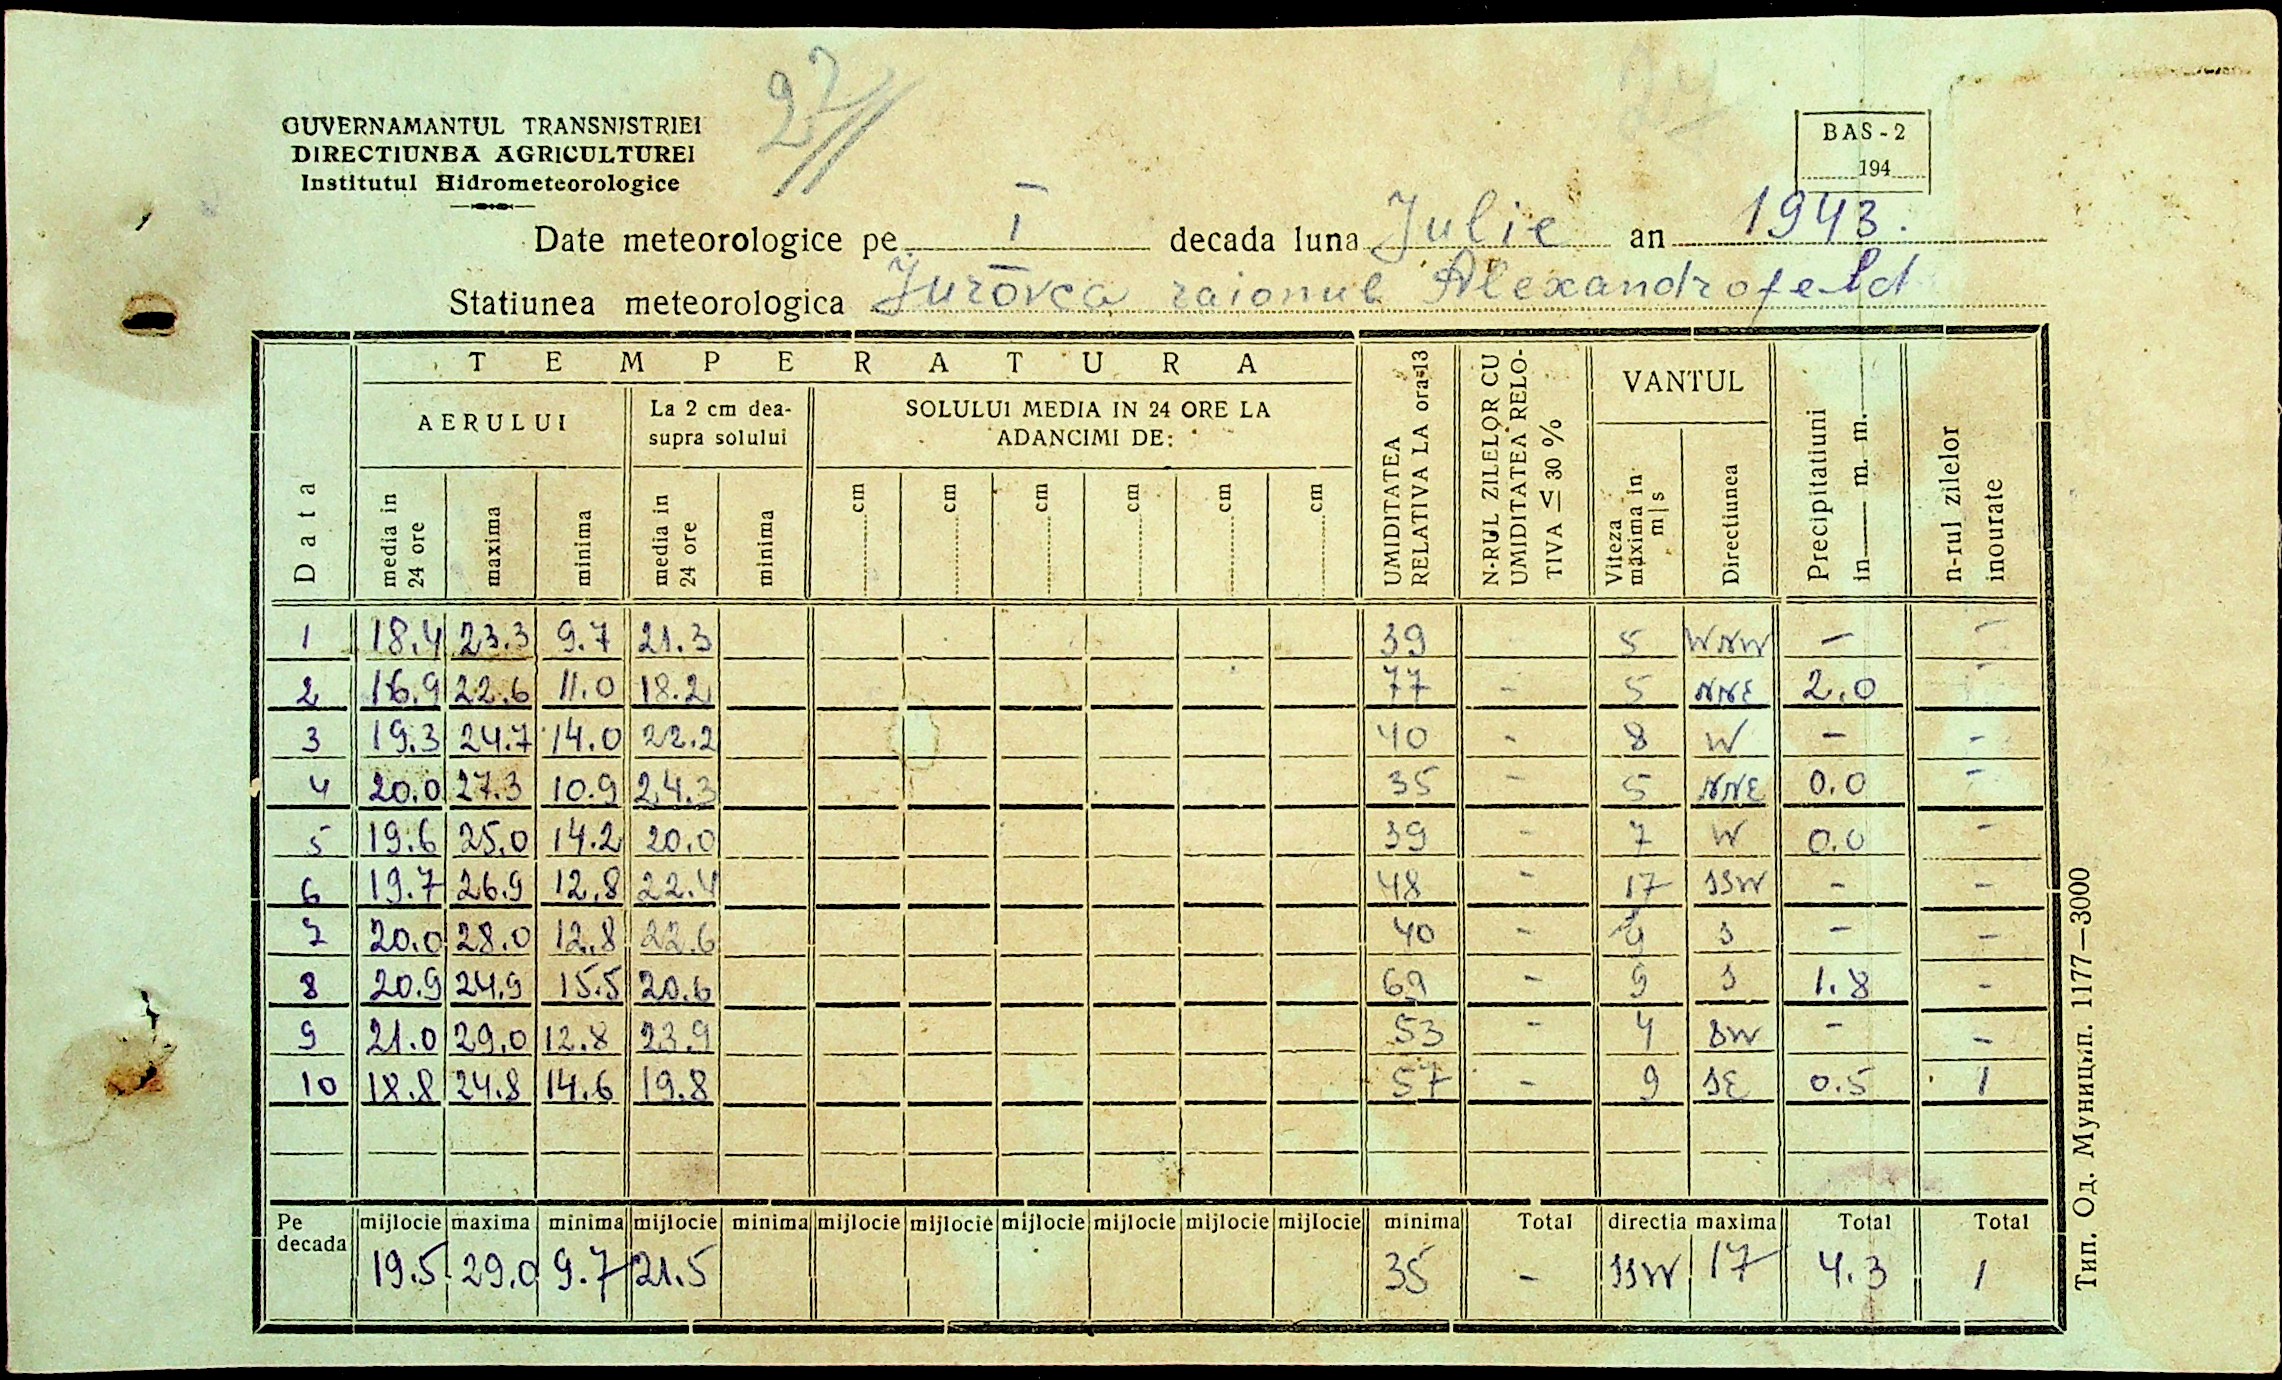 27
GUVERNAMANTUL TRANSNISTRIEI
DIRECTIUNEA AGRICULTUREI
Institutul Hidrometeorologice
BAS-2
194
Date meteorologice pe I decada luna Julie an 1943.
Statiunea meteorologica Jurovca raionul Alexandrofeld
Data
TEMPERATURA
AERULUI
La 2 cm dea-
supra solului
SOLULUI MEDIA IN 24 ORE LA
ADANCIMI DE:
media in 24 ore maxima minima media in 24 ore minima cm cm cm cm cm cm
UMIDITATEA RELATIVA LA ora-13
N-RUL ZILELOR CU UMIDITATEA RELO-TIVA ≤ 30 %
VANTUL
Viteza maxima in m|s Directiunea
Precipitatiuni in m. m.
n-rul zilelor inourate
1 18.4 23.3 9.7 21.3 39 5 WNW – –
2 16.9 22.6 11.0 18.2 77 - 5 NNE 2.0 -
3 19.3 24.7 14.0 22.2 40 - 8 W – -
4 20.0 27.3 10.9 24.3 35 - 5 NNE 0.0 -
5 19.6 25.0 14.2 20.0 39 - 7 W 0.0 -
6 19.7 26.9 12.8 22.4 48 - 17 SSW - -
7 20.0 28.0 12.8 22.6 40 - 9 S - -
8 20.9 24.9 15.5 20.6 69 - 9 S 1.8 -
9 21.0 29.0 12.8 23.9 53 - 4 SW - -
10 18.8 24.8 14.6 19.8 57 - 9 SE 0.5 1
Pe decada mijlocie maxima minima mijlocie minima mijlocie mijlocie mijlocie mijlocie mijlocie mijlocie minima Total directia maxima Total Total
19.5 29.0 9.7 21.5 35 - SSW 17 4.3 1
Тип. Од. Муницип. 1177—3000